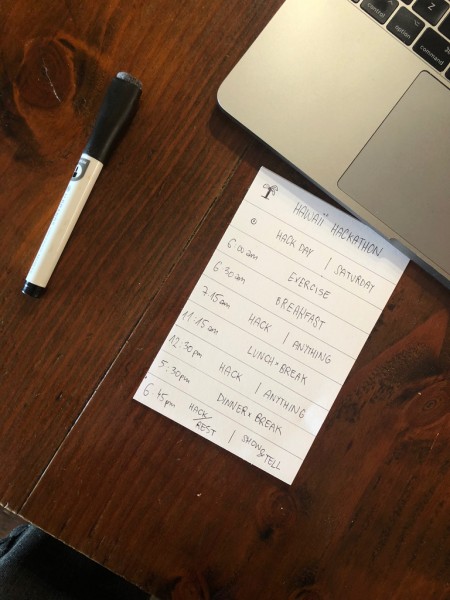 control
option
command
Z
HAWAII HACKATHON
HACK DAY | SATURDAY
6:00am EXERCISE
6:30am BREAKFAST
7:15am HACK | ANYTHING
11:15am LUNCH + BREAK
12:30pm HACK | ANYTHING
5:30pm DINNER + BREAK
6:45pm HACK/REST | SHOW&TELL